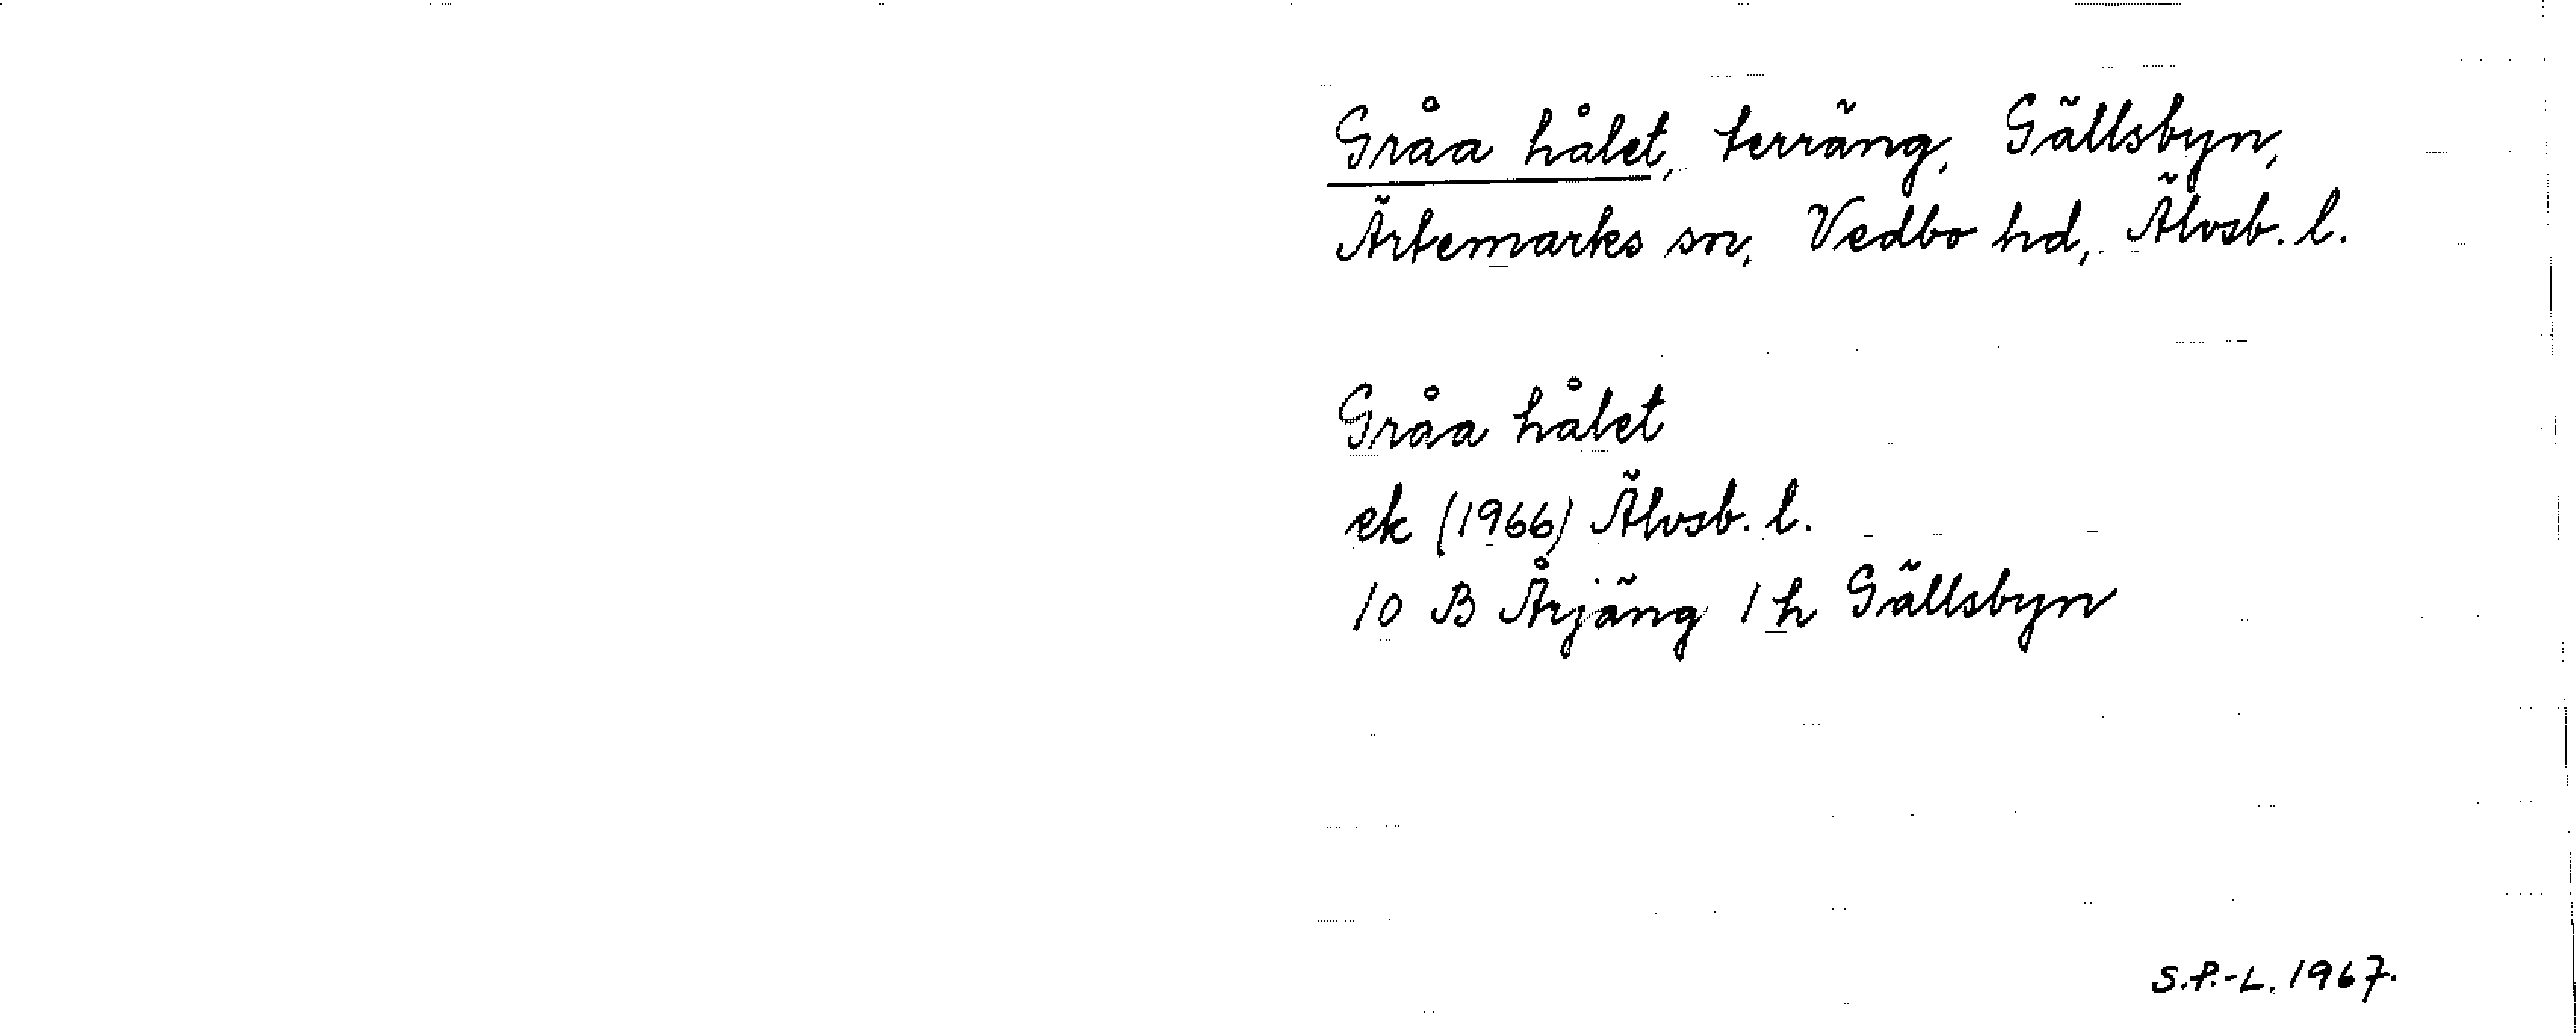 Gråa hålet, terräng, Gällsbyn,
Ärtemarks sn, Vedbo hd, Älvsb. l.
Gråa hålet
ek (1966) Älvsb. l.
10 B Årjäng 1 h Gällsbyn
S.P.-L. 1967.